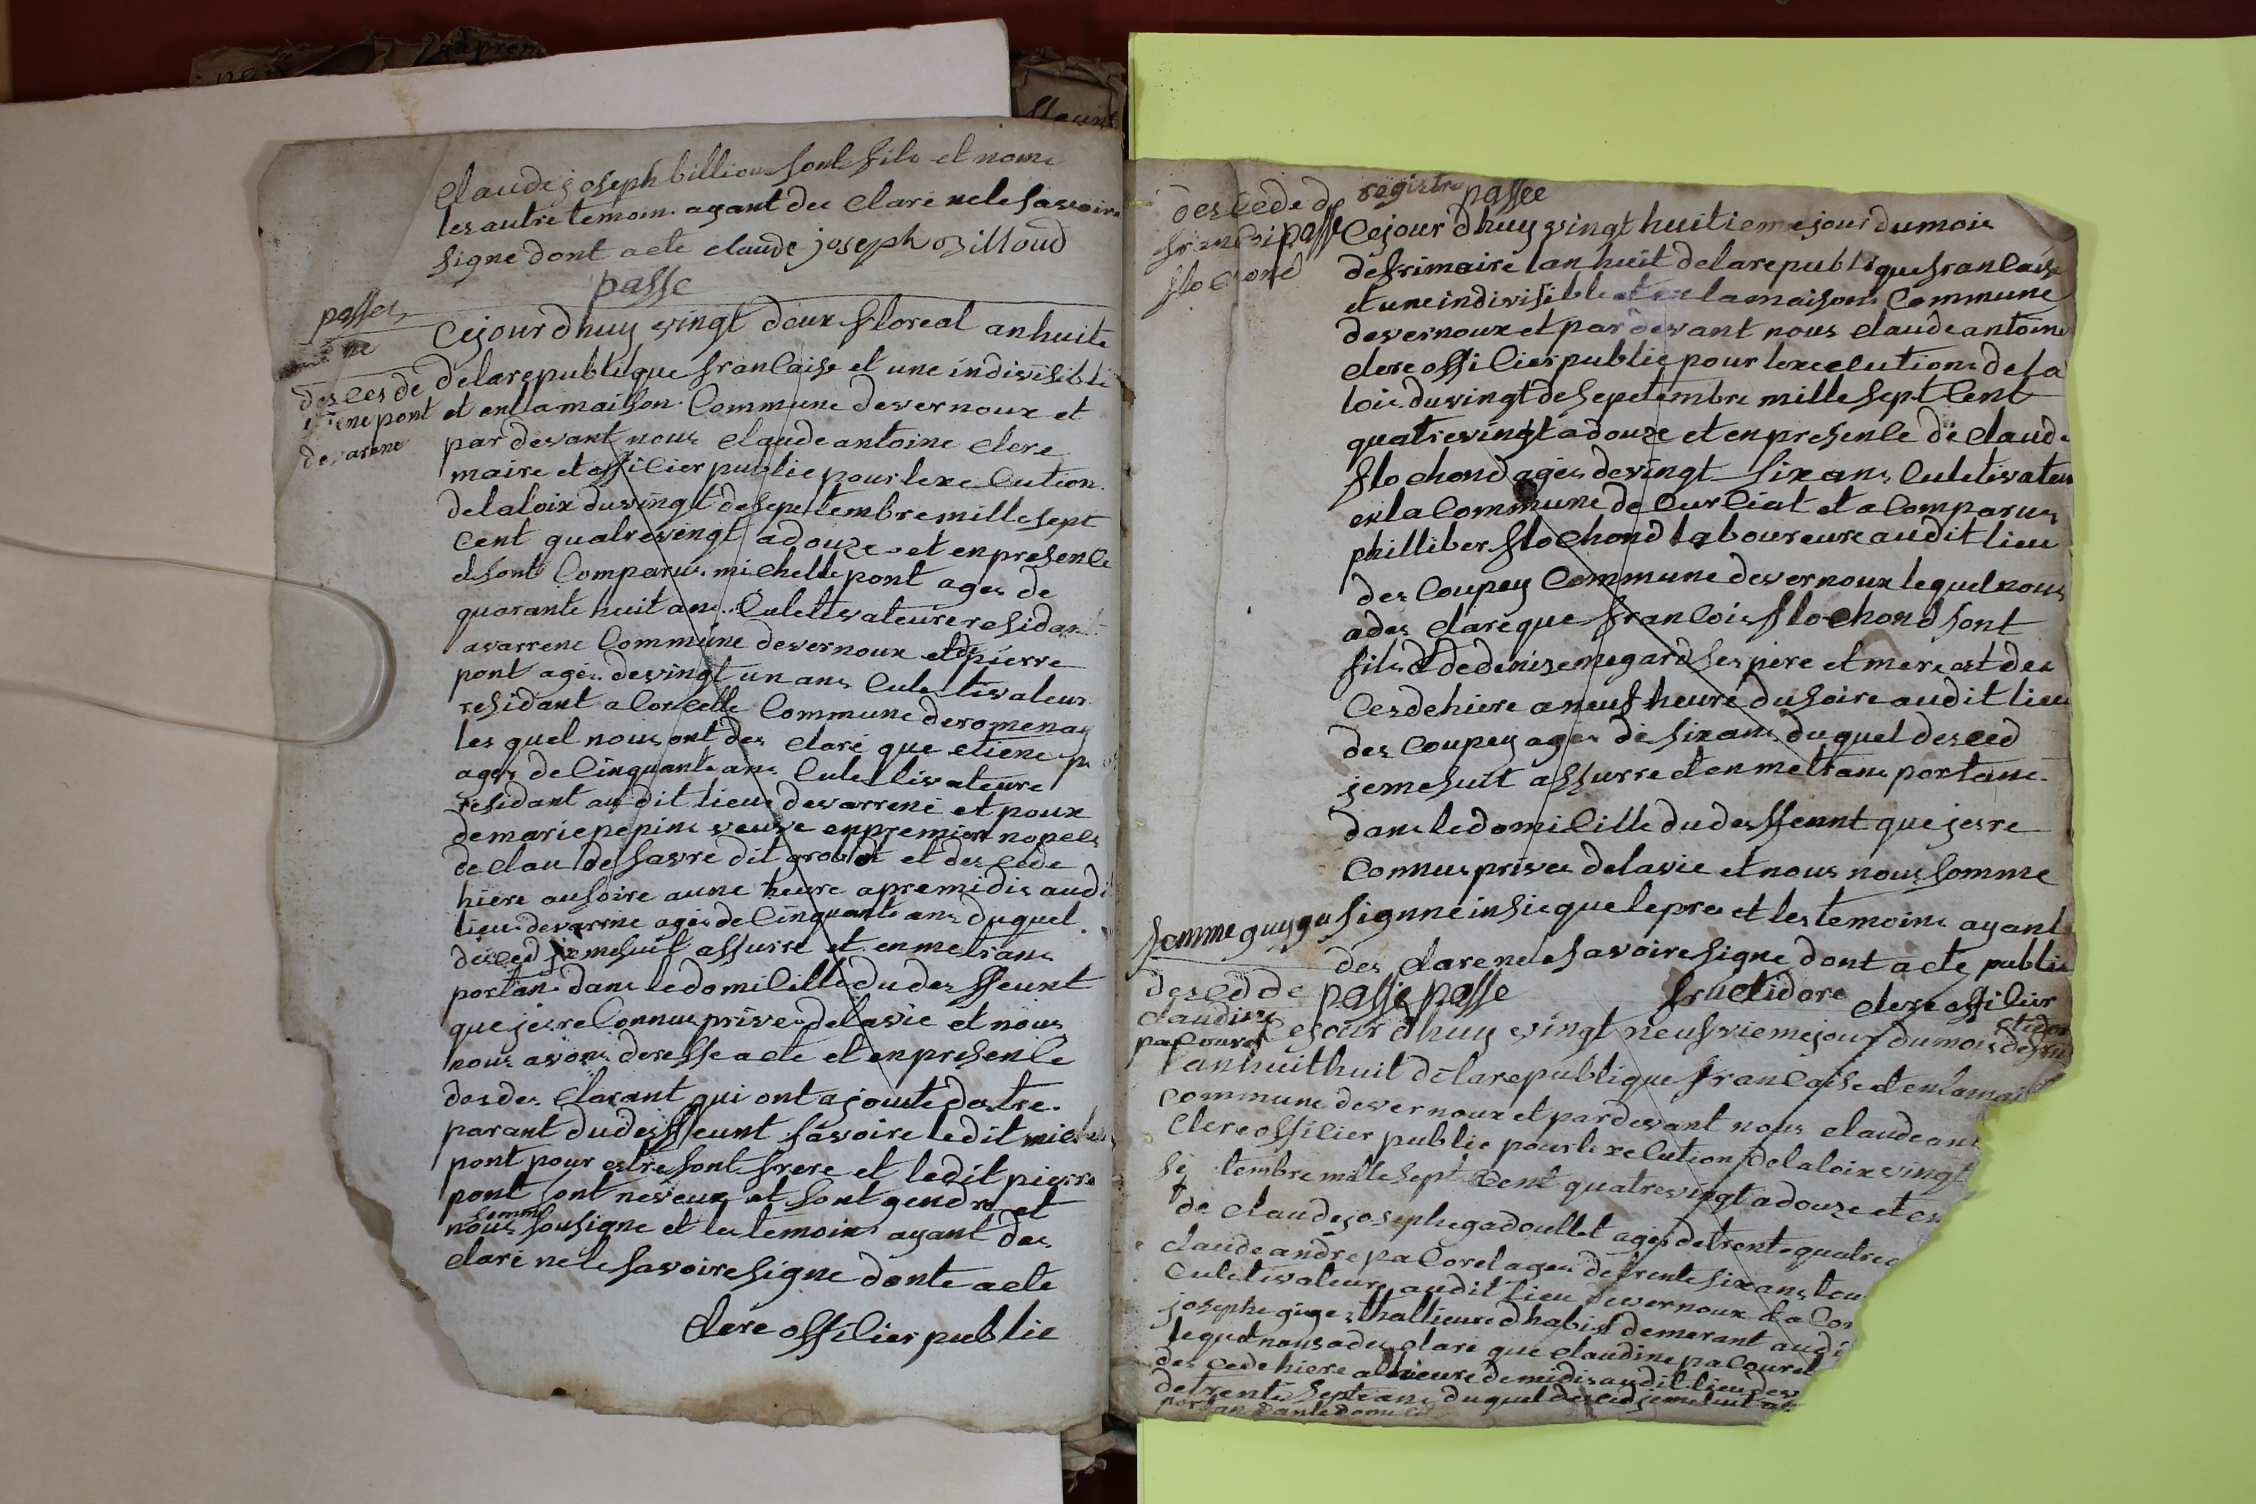 Claude joseph billiou sont fils et nome
les autre temoin ayant dec claré nele savoire
signe dont acte claude joseph ozilloud
passe
passer
Cejour dhuy vingt deux floreal an huite
desces de
delarepublique francaise et une indivisible
et en la maison Commune devernoux et
pont
devarene
par devant nous Claude antoine clere
maire et offilier public pour lexe Cution
delaloix duvingt desepetembre mille sept
Cent quatrevingt adouze et enpresence
et sont Comparus michelle pont ages de
quarante huit ans Culetivateure residant
avarrene Commune devernoux et de pierre
pont ages devingt un ans Culetivateur
residant a Corcelle Commune deromenay
les quel nous ont des claré que etiene
ages de Cinquante ans Culettivateure
residant audit lieu devarrene et poux
demarie pepine veuve enpremiere nopces
de clau de favre dit et des cede
hiere ausoire aune heure apremidis audi
lieu devarrene ages de Cinquante ans duquel
desced je mesuit assurre et enmetrans
portan dans ledomicille du desffeunt
que jes reconnus prives delavie et nous
nous avons deresse acte et enpresence
des des clarant qui ont ajoute destre
parant dudesffeunt savoire ledit michel
pont pour estre sont frere et ledit pierre
pont sont neveux et sont gendre et
somme
nous sousigne et les temoins ayant des
claré nele savoire signe donte acte
Clere offilier public
registre passee
desCede de
francoi passe
flochond
Cejour dhuy vingt huitieme jour dumois
defrimaire lan huit delarepublique francaise
et une indivisible et en lamaison Commune
devernoux et par devant nous claude antoine
clere offilier public pour lexecutione dela
loix duvingt desepetembre mille sept Cent
quatrevingt adouze et enpresence de claude
flochond ages devingt six ans Culetivateur
en la Commune de Curciat et a Comparus
philliber flochond laboureure audit lieu
des Coupey Commune devernoux lequel nous
ades claré que francois flochond sont
fils et dedenise megard ses pere et mere est des
Cesdehiere aneuf heure dusoire audit lieu
des Coupey ages de six ans duquel desced
jemesuit assurre et en metrans portant
dans ledomicille du desffeunt que jes re
Connus prives delavie et nous nous somme
signne insie que le pres et les temoins ayant
des clarene savoire signe dont acte public
femme guyga
fructidore clere offilier
desced de passe passe
claudine
pacouret
Cejour dhuy vingt neufvieme jour dumois defru
ctidor
lanhuit huit delarepublique francaise et en lamai
commune devernoux et pardevant nous claude ant
Clere offilier public pour lexelution delaloix vingt
tembre mille sept Cent quatrevingt adouze et en
de Claude josephe gadoullet ages detrente quatre
claude andre pacoret ages detrente six ans tou
Culetivateure audit lieu devernoux et a Com
josephe guiges thallieure dhabist demerant audi
lequel nous ades claré que Claudine pacouret
des cede hiere a lheure demidis audit lieu dev
detrente septe ans duquel desced jemesuit as
portan dansle domici